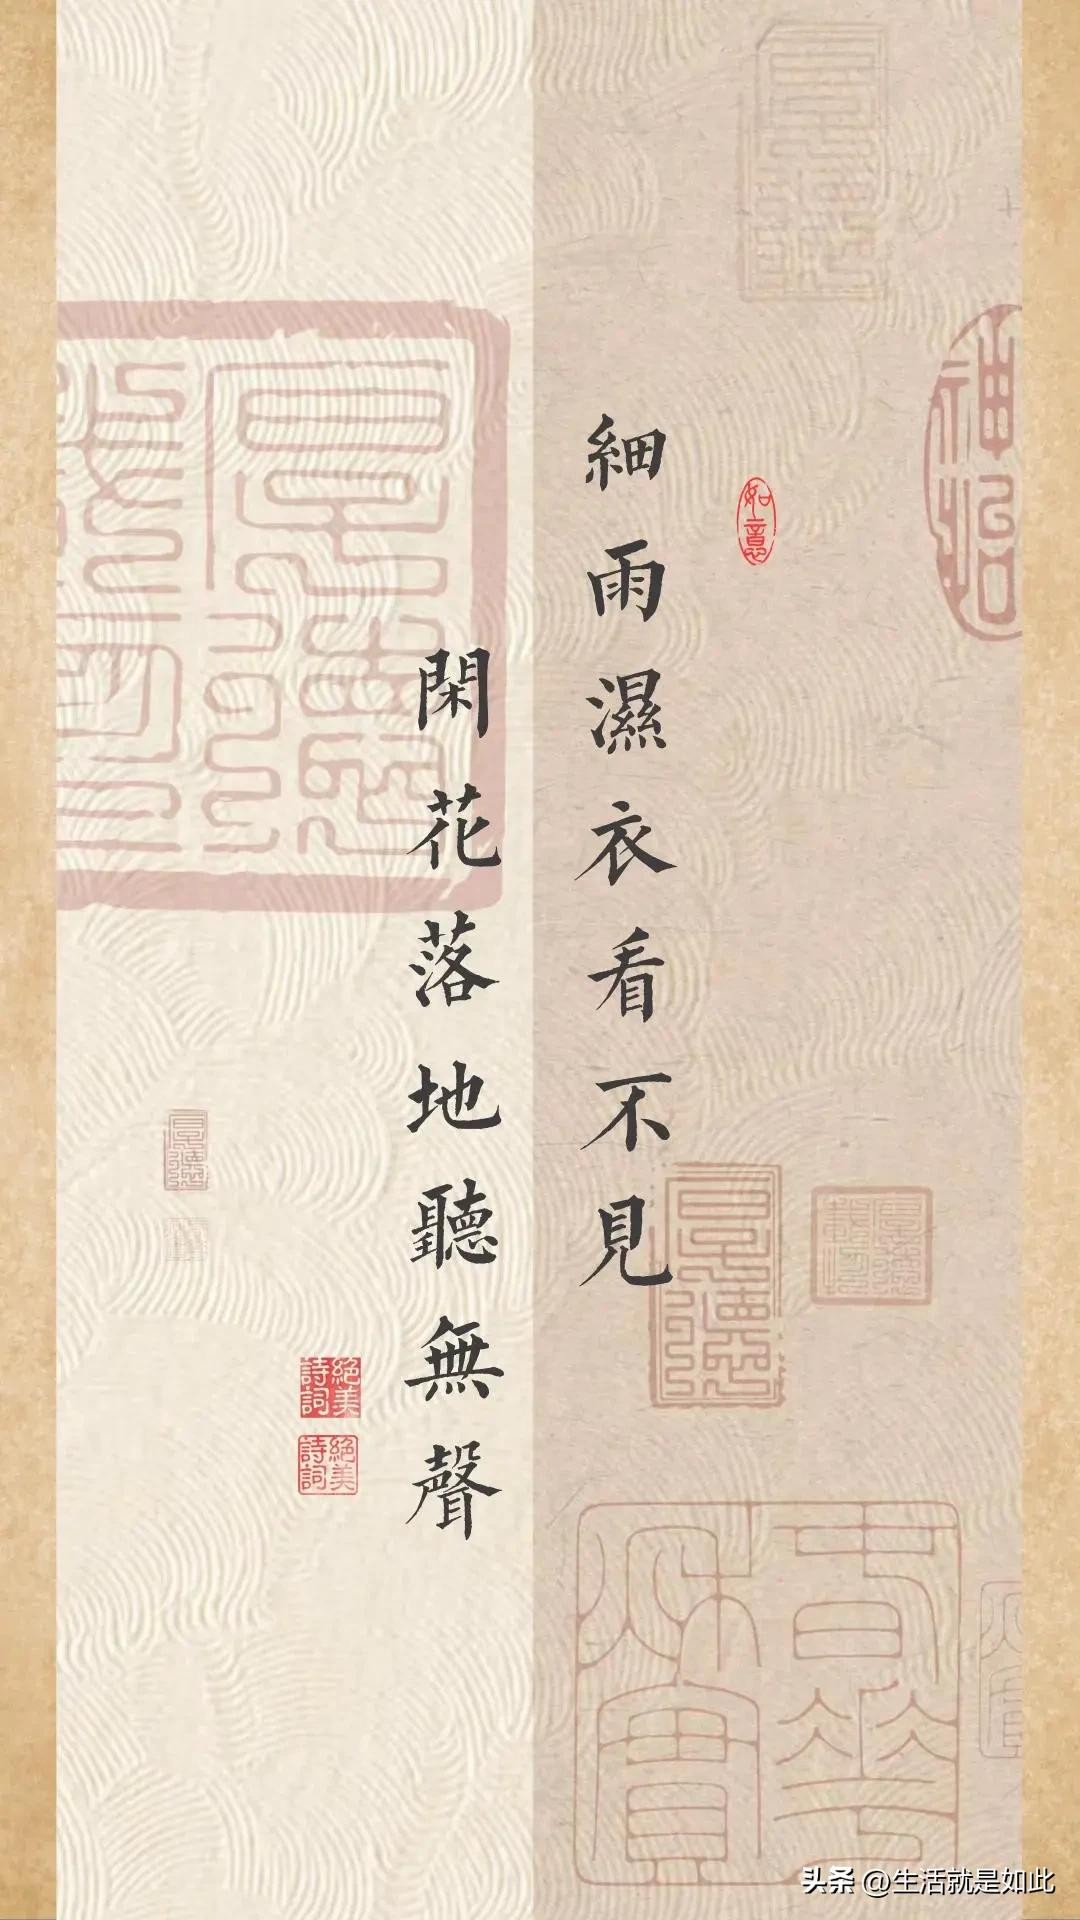 細雨濕衣看不見
閑花落地聽無聲
如意
神怡
絕美詩詞
絕美詩詞
春華秋實
头条 @生活就是如此